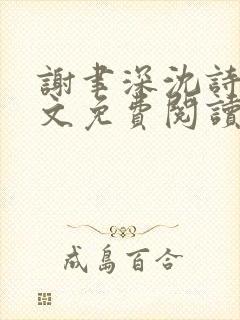 謝聿深沈詩
文免費閱讀
成島百合